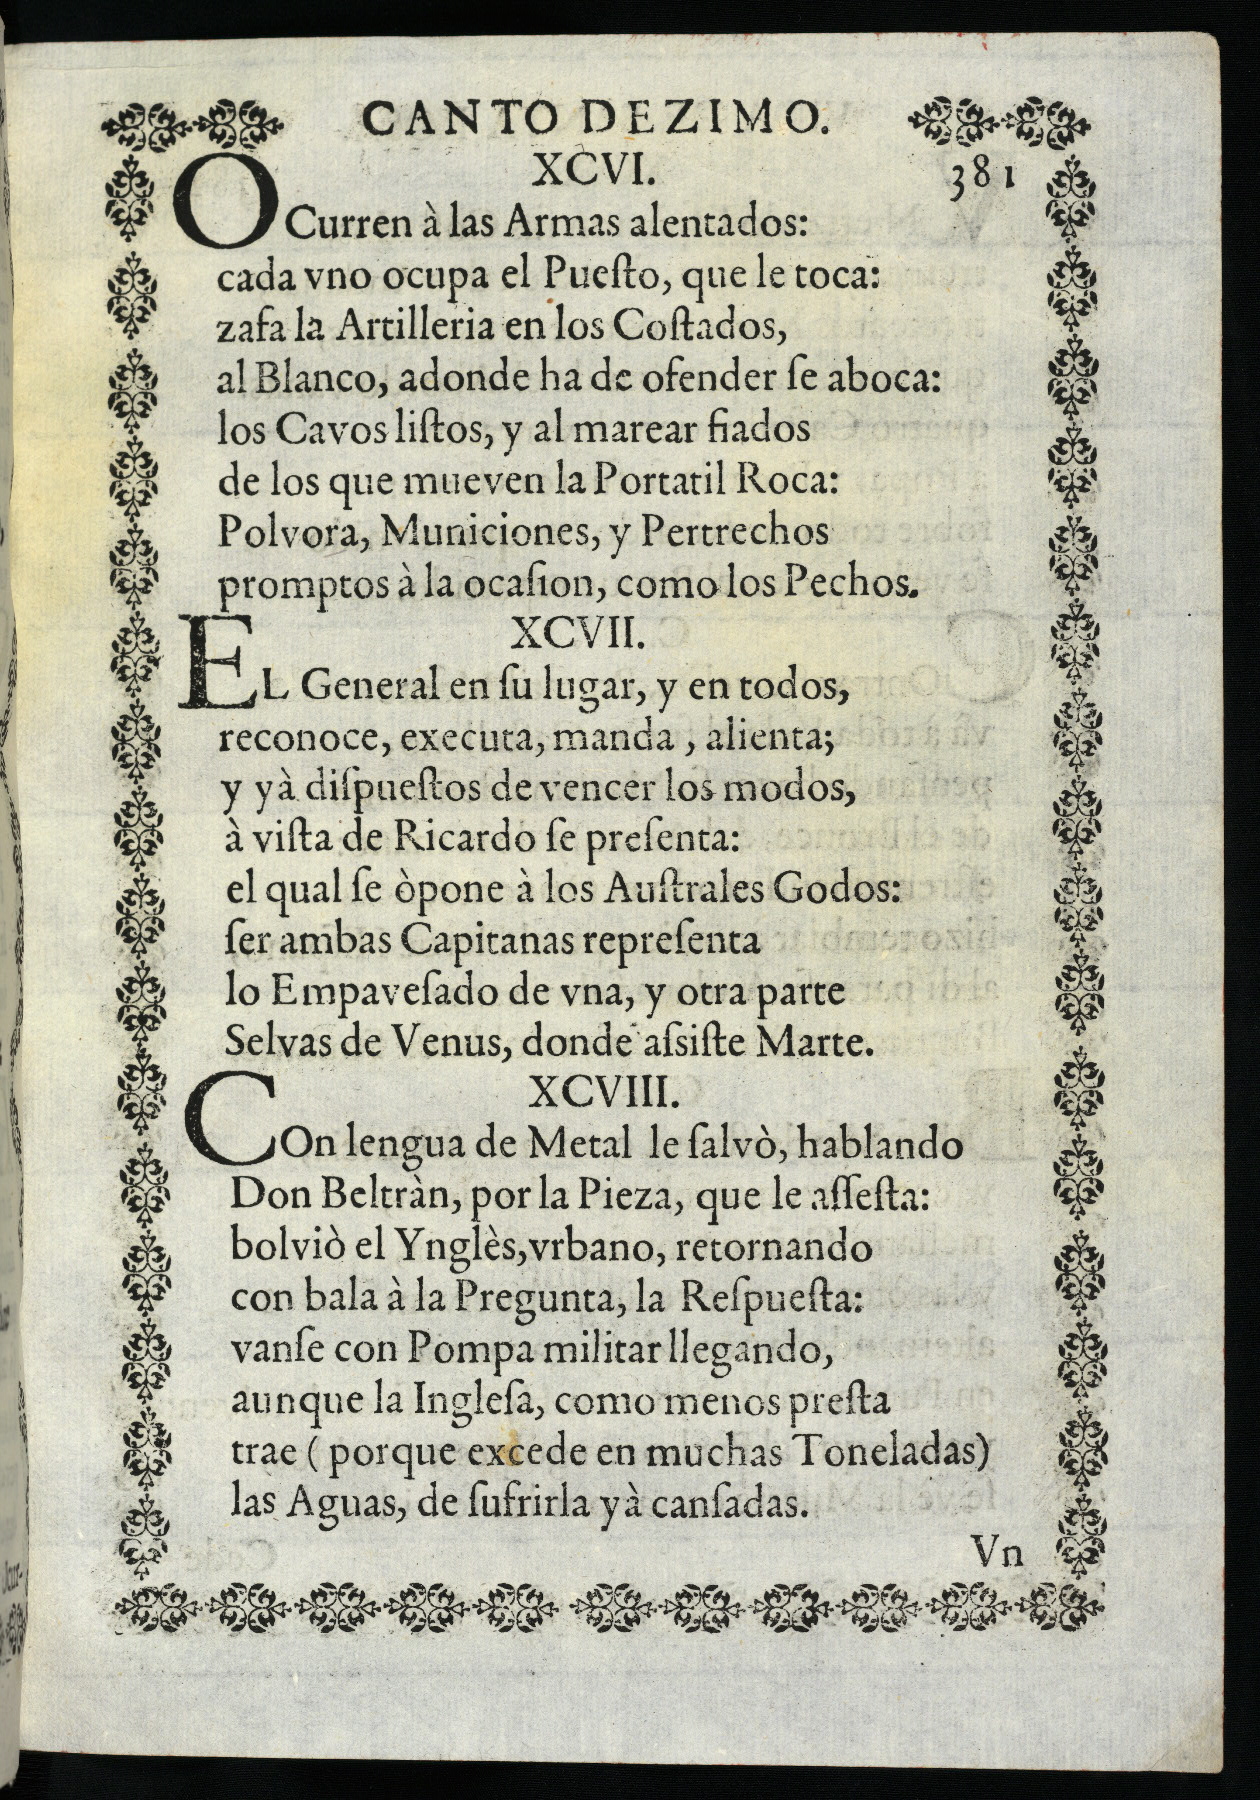 CANTO DEZIMO.
XCVI.
381
OCurren à las Armas alentados:
cada vno ocupa el Pueſto, que le toca:
zafa la Artilleria en los Coſtados,
al Blanco, adonde ha de ofender ſe aboca:
los Cavos liſtos, y al marear fiados
de los que mueven la Portatil Roca:
Polvora, Municiones, y Pertrechos
promptos à la ocaſion, como los Pechos.
XCVII.
EL General en ſu lugar, y en todos,
reconoce, executa, manda, alienta;
y yà diſpueſtos de vencer los modos,
à viſta de Ricardo ſe preſenta:
el qual ſe òpone à los Auſtrales Godos:
ſer ambas Capitanas repreſenta
lo Empaveſado de vna, y otra parte
Selvas de Venus, donde aſsiſte Marte.
XCVIII.
COn lengua de Metal le ſalvò, hablando
Don Beltràn, por la Pieza, que le aſſeſta:
bolviò el Ynglès, vrbano, retornando
con bala à la Pregunta, la Reſpueſta:
vanſe con Pompa militar llegando,
aunque la Ingleſa, como menos preſta
trae (porque excede en muchas Toneladas)
las Aguas, de ſufrirla yà canſadas.
Vn